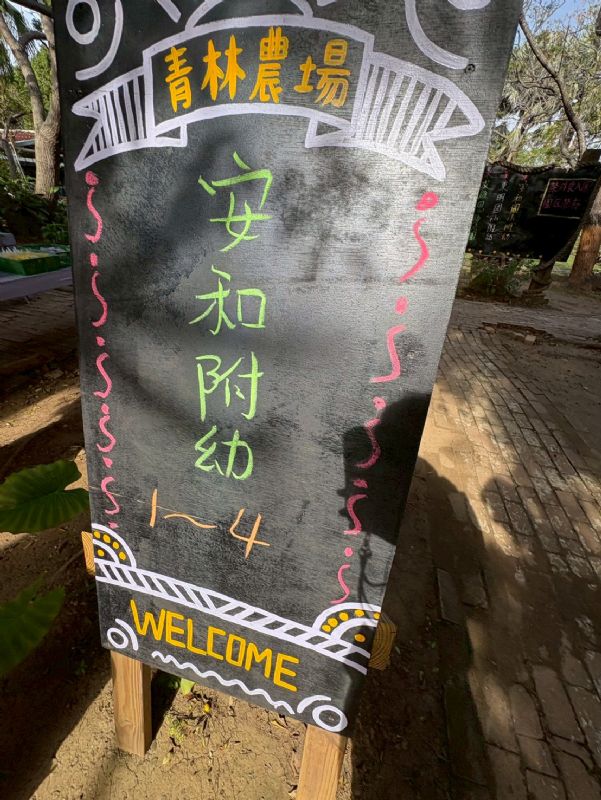 青林農場
安和附幼
1～4
WELCOME